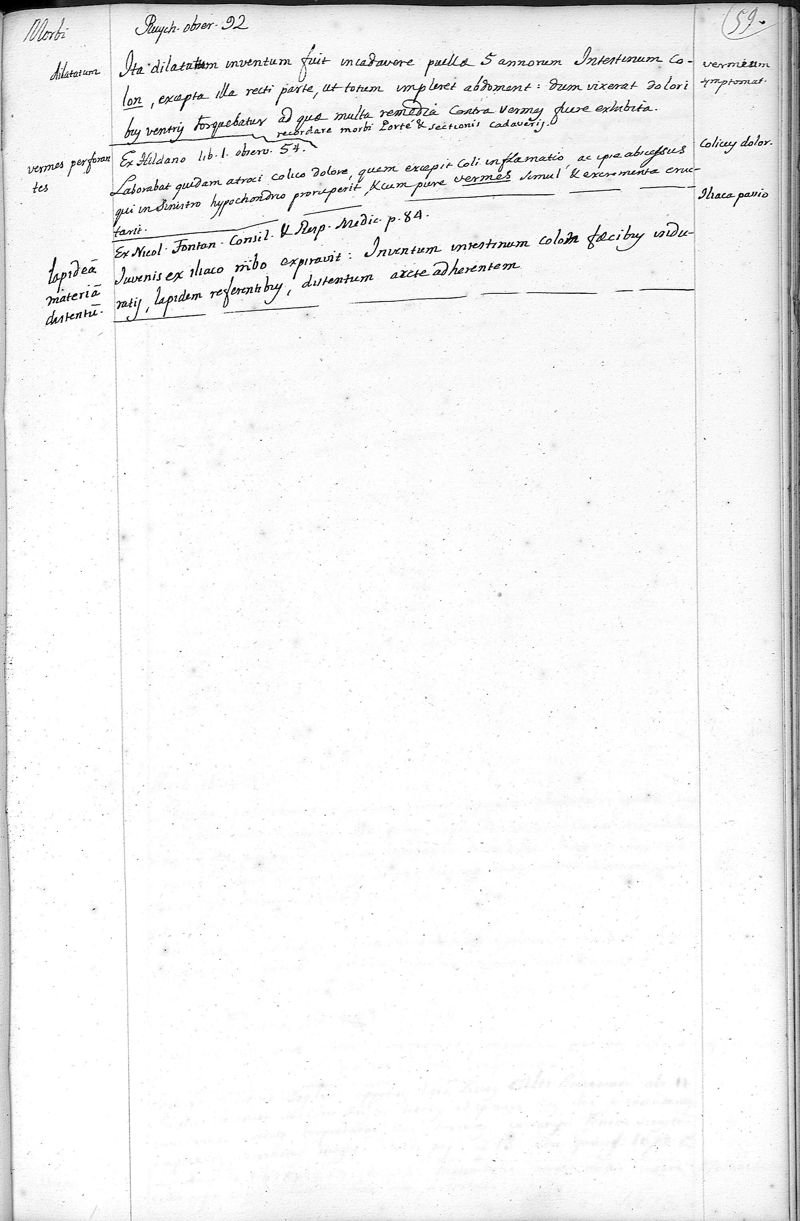 Morbi
Ruych. obser. 92
59.
dilatatum
Ita dilatatum inventum fuit in cadavere puellæ 5 annorum Intestinum Co-
lon, excepta illa recti parte, ut totum impleret abdomen: dum vixerat dolori
bus ventris torquebatur ad quæ multa remedia Contra vermes fuere exhibita.
recordare morbi & sectionis cadaveris.
vermium
symptomat.
vermes perforan
tes
Ex Hildano lib. 1. observ. 54.
Laborabat quidam atroci colico dolore, quem excepit Coli inflamatio, ac ipse abscessus
qui in Sinistro hypochondrio proruperit, & cum pure vermes simul & excrementa eruc-
tavit.
Colicus dolor.
Iliaca passio
lapideâ
materiâ
distentū.
Ex Nicol. Fontan. Consil. & Resp. Medic. p. 84.
Iuvenis ex iliaco mbo expiravit: Inventum intestinum colon fæcibus indu-
ratis, lapidem referentibus, distentum arcte adherentem